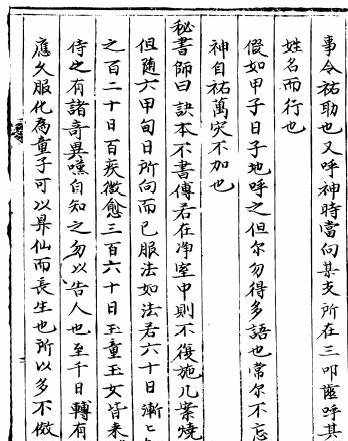 事令祐助也又呼神時當向某支所在三叩齒呼其
姓名而行也
假如甲子日子地呼之但尔勿得多語也常尔不忘
神自祐萬灾不加也
秘書師曰訣本不書傳若在净室中則不復施几案燒
但随六甲旬日所向而已服法如法若六十日漸〻
之百二十日百疾微愈三百六十日玉童玉女皆来
侍之有諸竒異嘿自知之勿以告人也至千日轉有
應久服化為童子可以昇仙而長生也所以多不傚